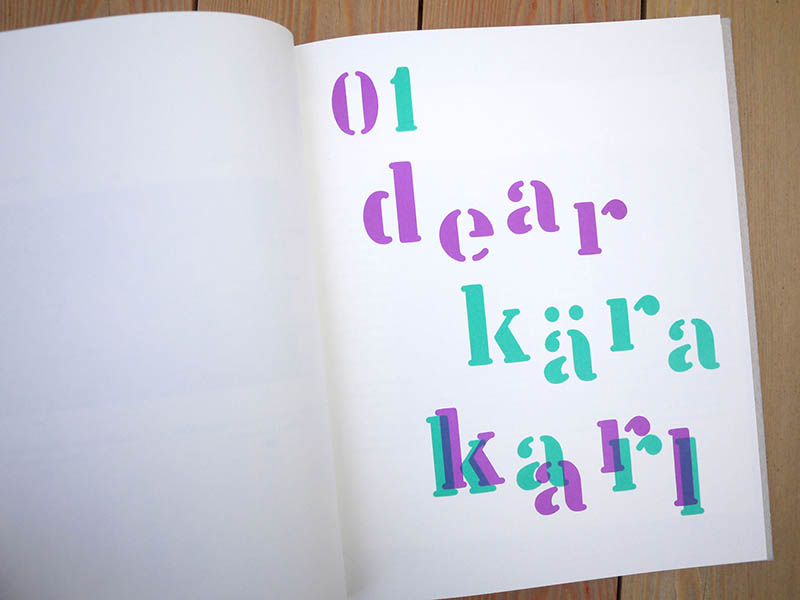 01
dear
kära
karl